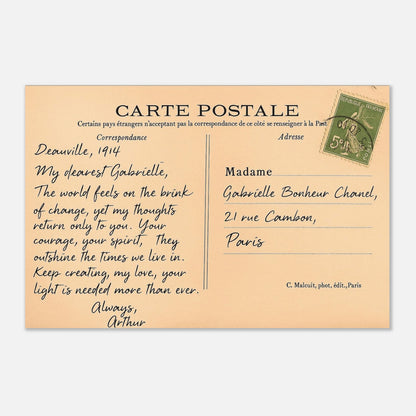 CARTE POSTALE
Certains pays étrangers n'acceptant pas la correspondance de ce côté se renseigner à la Post
Correspondance
Adresse
Deauville, 1914
My dearest Gabrielle,
The world feels on the brink
of change, yet my thoughts
return only to you. Your
courage, your spirit, They
outshine the times we live in.
Keep creating, my love, your
light is needed more than ever.
Always,
Arthur
Madame
Gabrielle Bonheur Chanel,
21 rue Cambon,
Paris
C. Malcuit, phot, édit., Paris
REPUBLIQUE FRANÇAISE